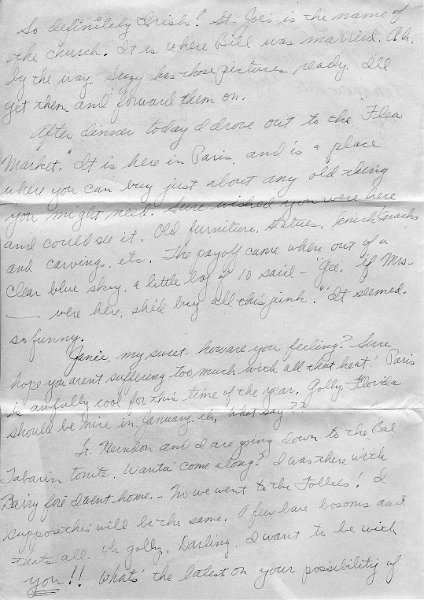 So definitely Irish! St. Joe's is the name of
the church. It is where Bill was married. Ah,
by the way, Suzy has those pictures ready. I'll
get them and forward them on.
After dinner today I drove out to the "Flea
Market." It is here in Paris, and is a place
where you can buy just about any old thing
you might need. Sure wished you were here
and could see it. Old furniture, statues, knick knacks
and carvings, etc. The payoff came when out of a
clear blue sky, a little boy of 10 said - "Gee, if Mrs-
— were here, she'd buy all this junk." It seemed
so funny.
Janie, my sweet, how are you feeling? Sure
hope you aren't suffering too much with all that heat! Paris
is awfully cool for this time of the year. Golly, Florida
should be nice in January, eh, what say?
Lt. Herndon and I are going down to the Bal
Tabarin tonite. Wanta' come along? I was there with
Barry 'fore I went home. - No we went to the Follies! I
suppose this will be the same. A few bare bosoms and
that's all. Oh golly, Darling, I want to be with
you!! What's the latest on your possibility of